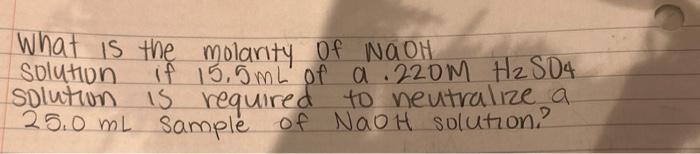 What is the molarity of NaOH
solution if 15.5mL of a .220M H2SO4
solution is required to neutralize a
25.0 mL sample of NaOH solution?